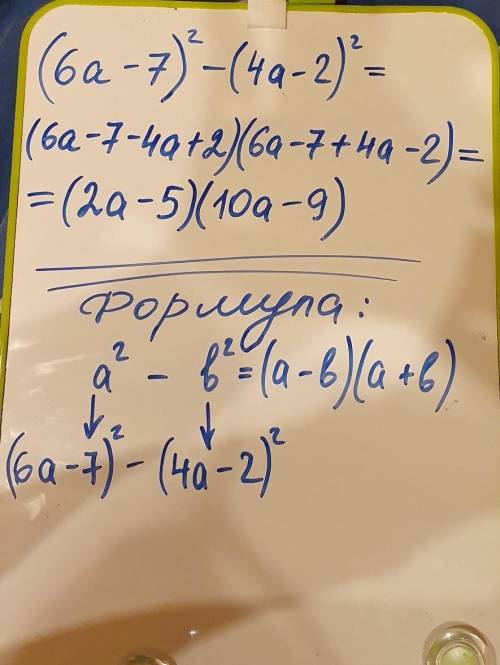 (6a-7)² - (4a-2)² =
(6a-7-4a+2)(6a-7+4a-2) =
= (2a-5)(10a-9)
Формула:
a² - b² = (a-b)(a+b)
↓ ↓
(6a-7)² - (4a-2)²